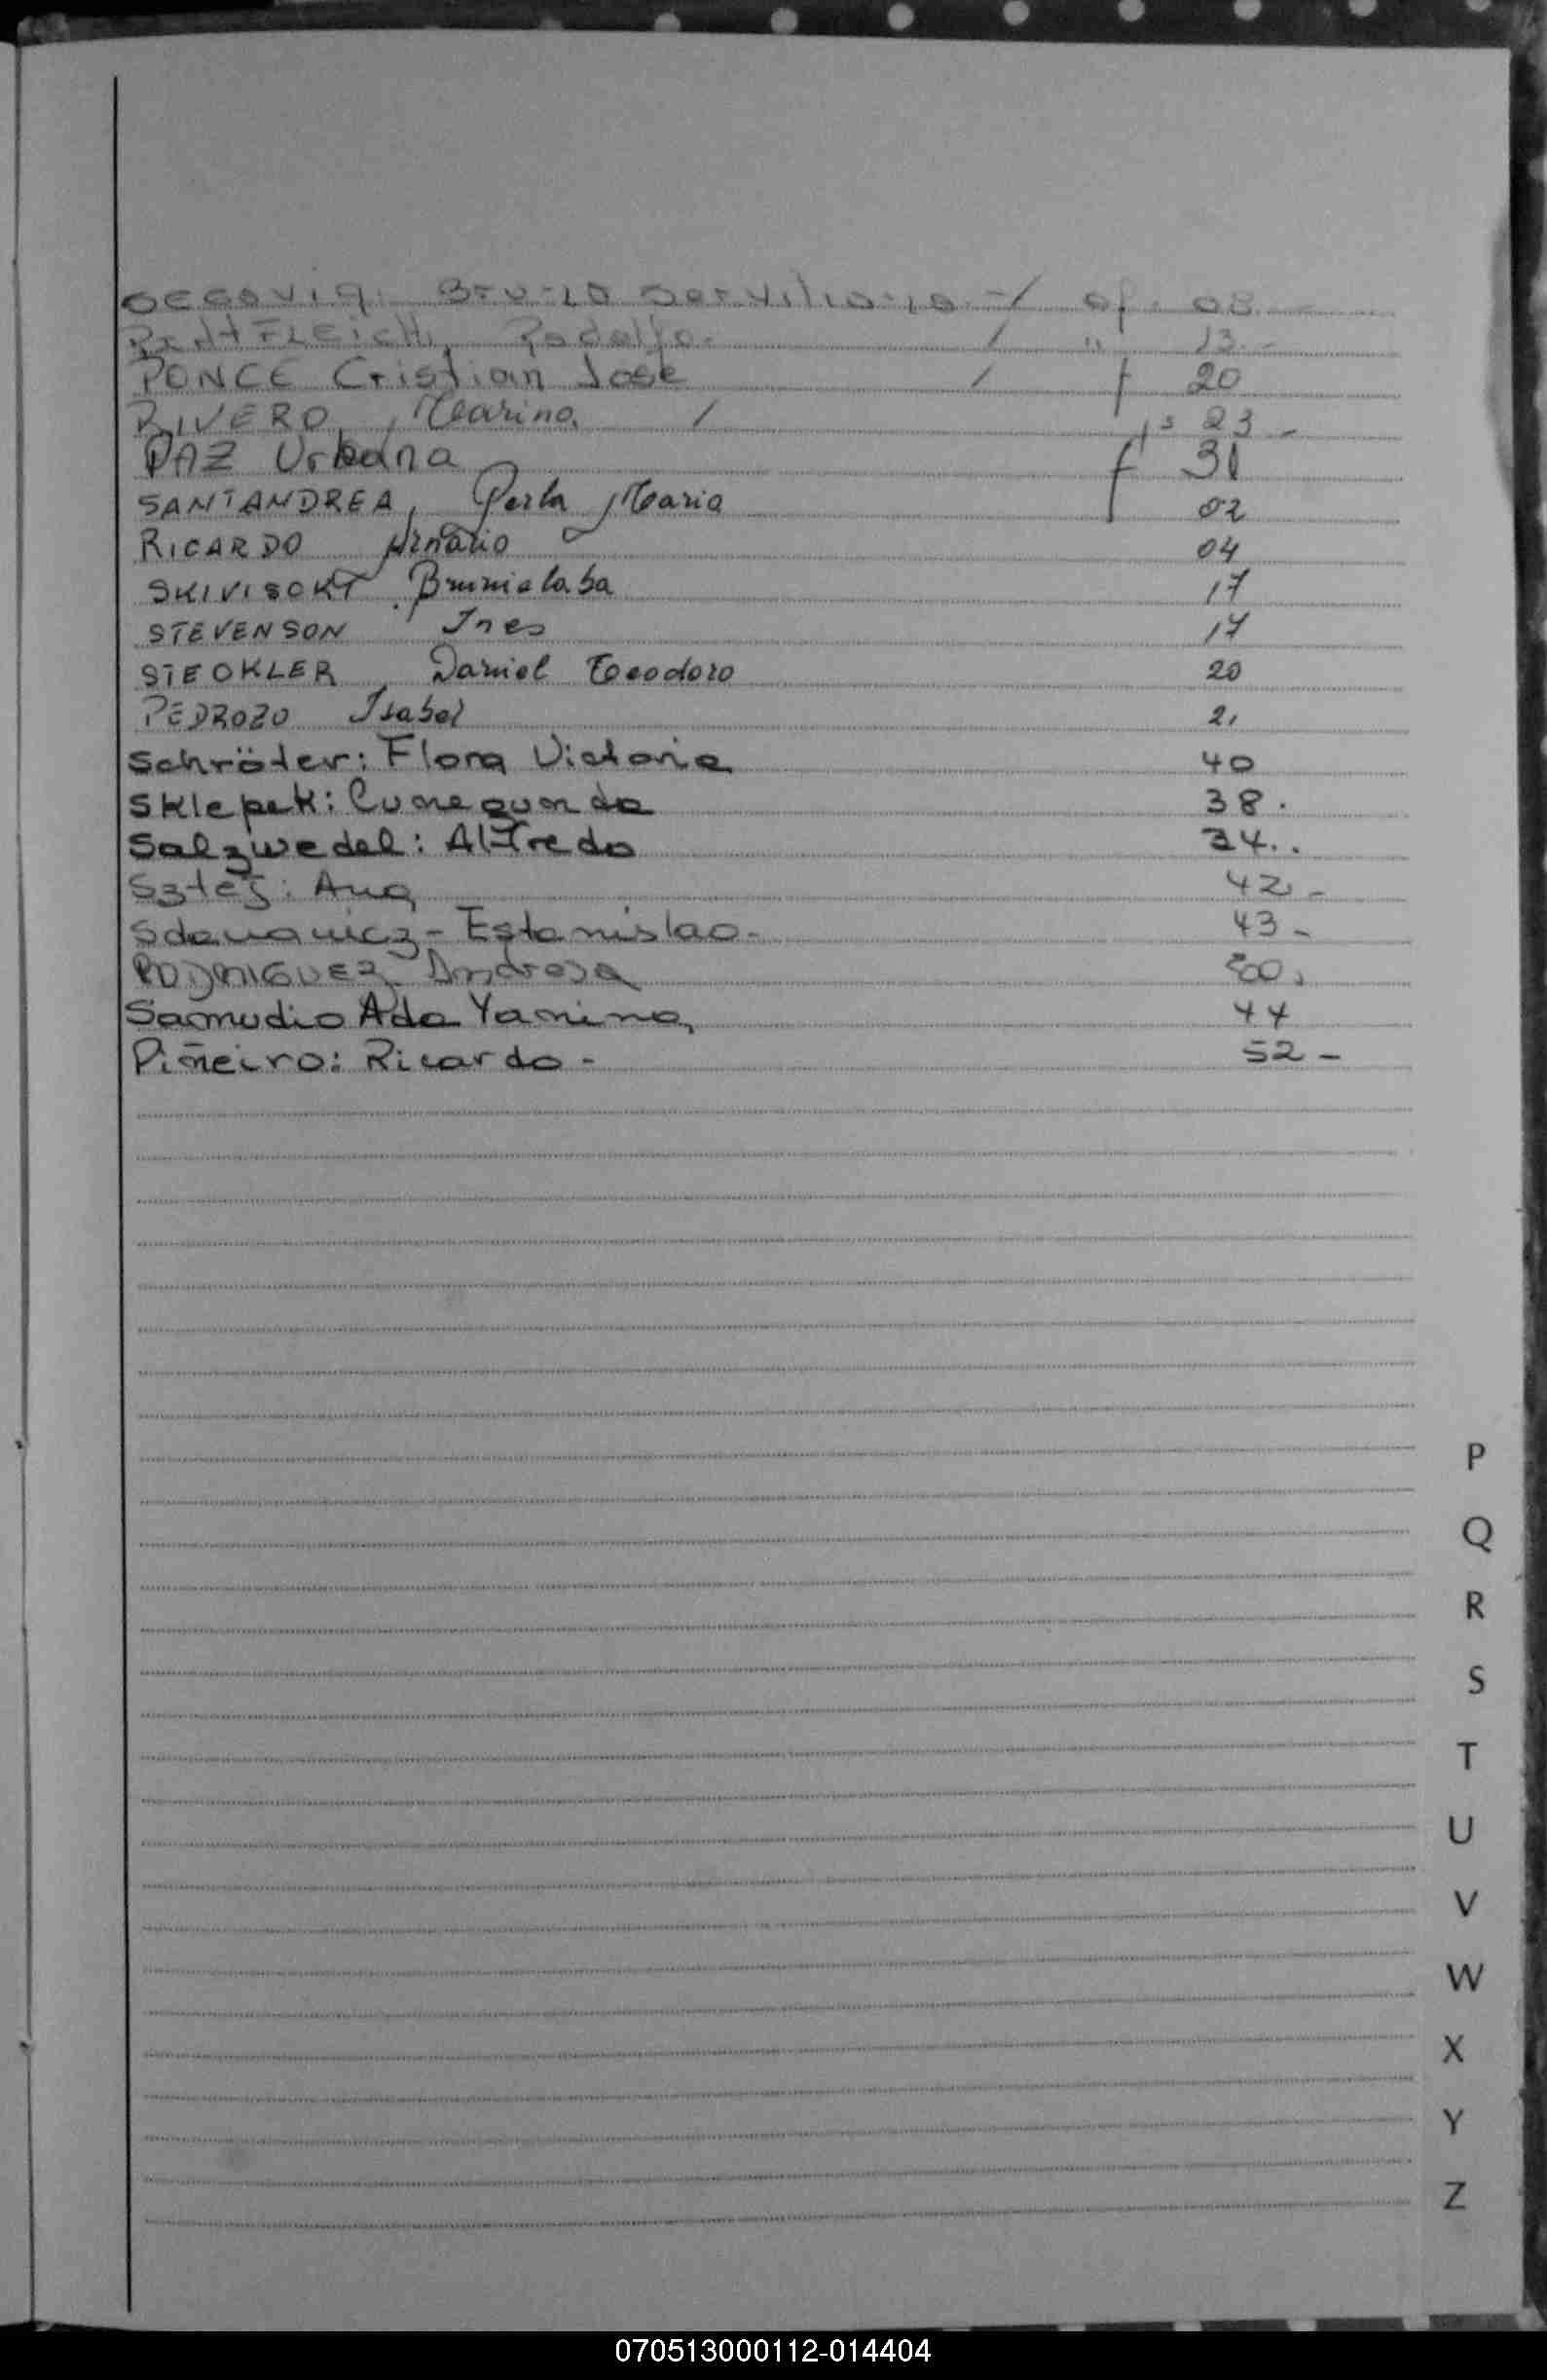 SEGOVIA: Bruno Serviliano -/ of. 08.-
RINDFLEICH, Rodolfo. / " 13.-
PONCE Cristian José / f 20
RIVERO, Marina. / fs 23-
PAZ Urbana f 31
SANTANDREA, Perla Maria 02
RICARDO 04
SKIVISCKY Brunislaba 17
STEVENSON Ines 17
STEOKLER Daniel Teodoro 20
PEDROZO Isabel 21
Schröder: Flora Victoria 40
Sklepek: Cunegunda 38.
Salzwedel: Alfredo 34..
Sztej: Ana 42.-
Estanislao- 43-
RODRIGUEZ Andresa
Samudio Ada Yanina, 44
Piñeiro: Ricardo- 52-
P
Q
R
S
T
U
V
W
X
Y
Z
070513000112-014404